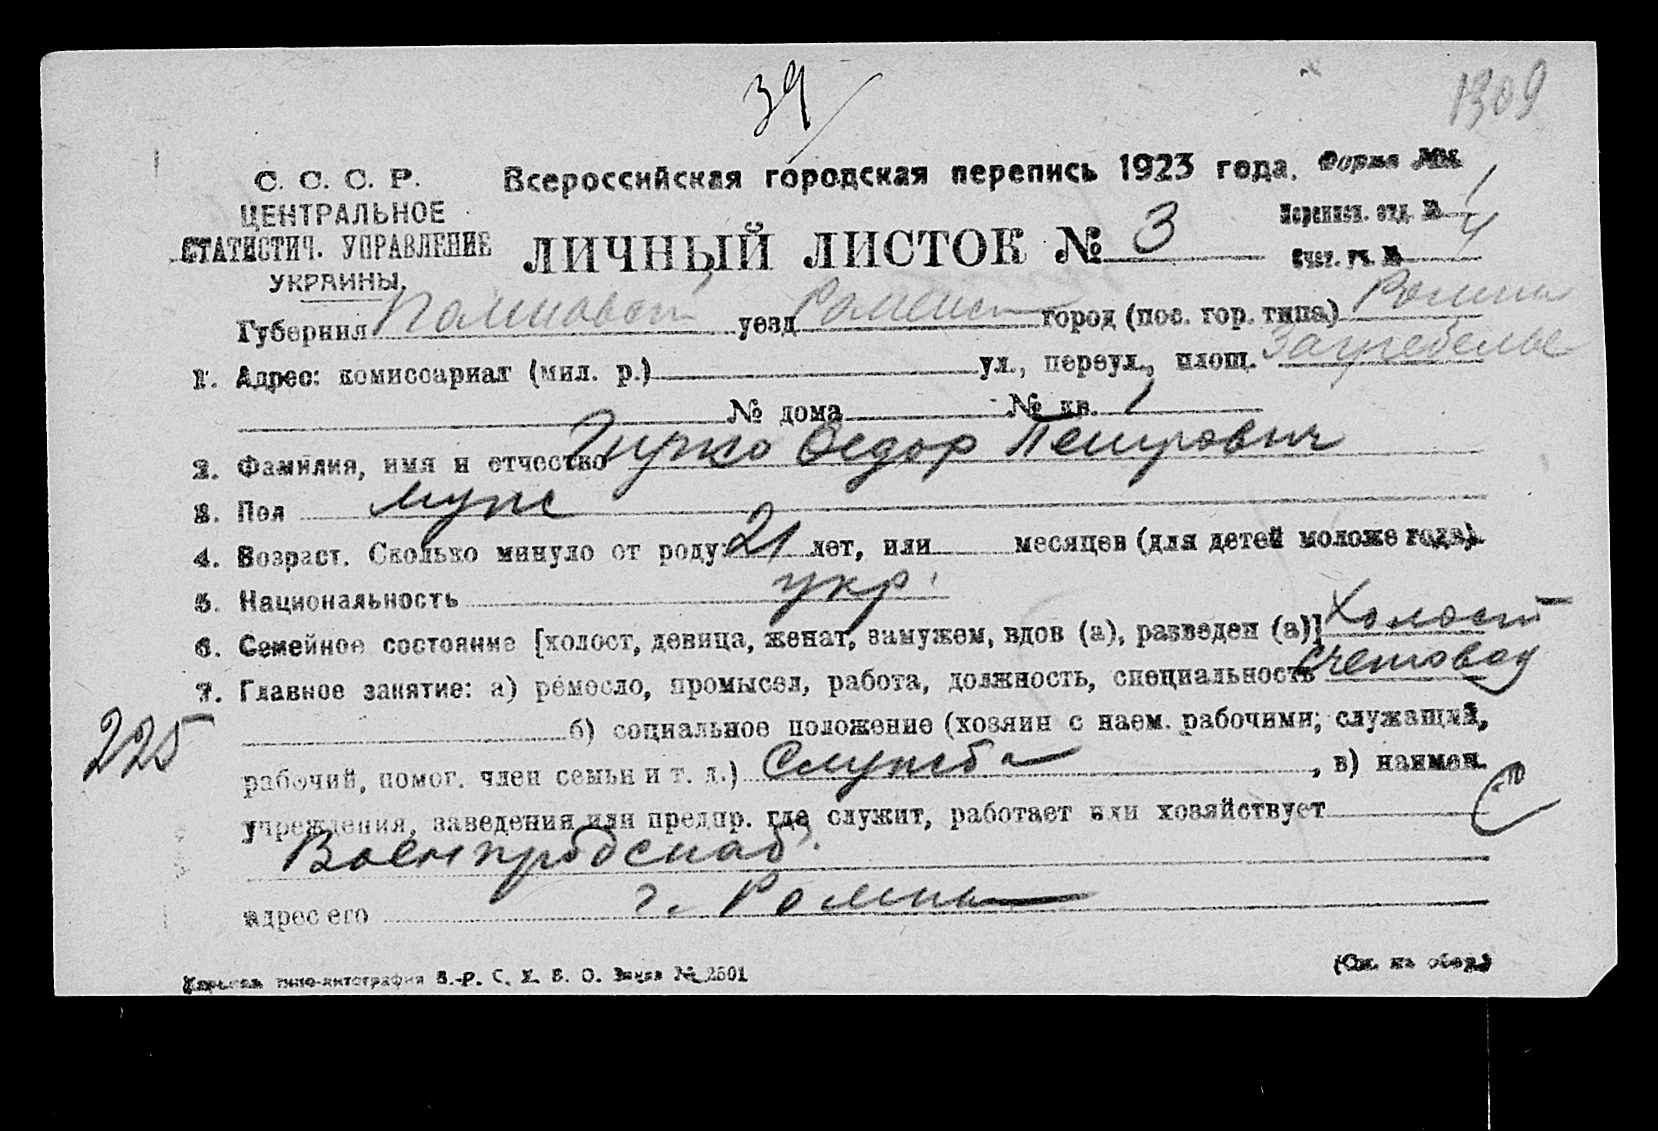 39
1309
С. С. С. Р.
ЦЕНТРАЛЬНОЕ
СТАТИСТИЧ. УПРАВЛЕНИЕ
УКРАИНЫ.
Всероссийская городская перепись 1923 года. Форма
ЛИЧНЫЙ ЛИСТОК № 3
отд. № 1
Счет. уч. № 4
Губерния Полтавск уезд Роменск город (пос. гор. типа) Ромны
1. Адрес: комиссариат (мил. р.) ул., переул., площ. Загребелье
№ дома № кв. 1
2. Фамилия, имя и отчество Федор Петрович
3. Пол муж
4. Возраст. Сколько минуло от роду: 21 лет, или месяцев (для детей моложе года).
5. Национальность укр.
6. Семейное состояние [холост, девица, женат, замужем, вдов (а), разведен (а)] холост
7. Главное занятие: а) ремесло, промысел, работа, должность, специальность счетовод
225
б) социальное положение (хозяин с наем. рабочими; служащий,
рабочий, помог. член семьи и т. д.) Служба, в) наимен.
учреждения, заведения или предпр. где служит, работает или хозяйствует
Военпродснаб.
адрес его г. Ромны
типо-литография В.-Р. С. Х. В. О. Заказ № 2501
(См. на обор.)